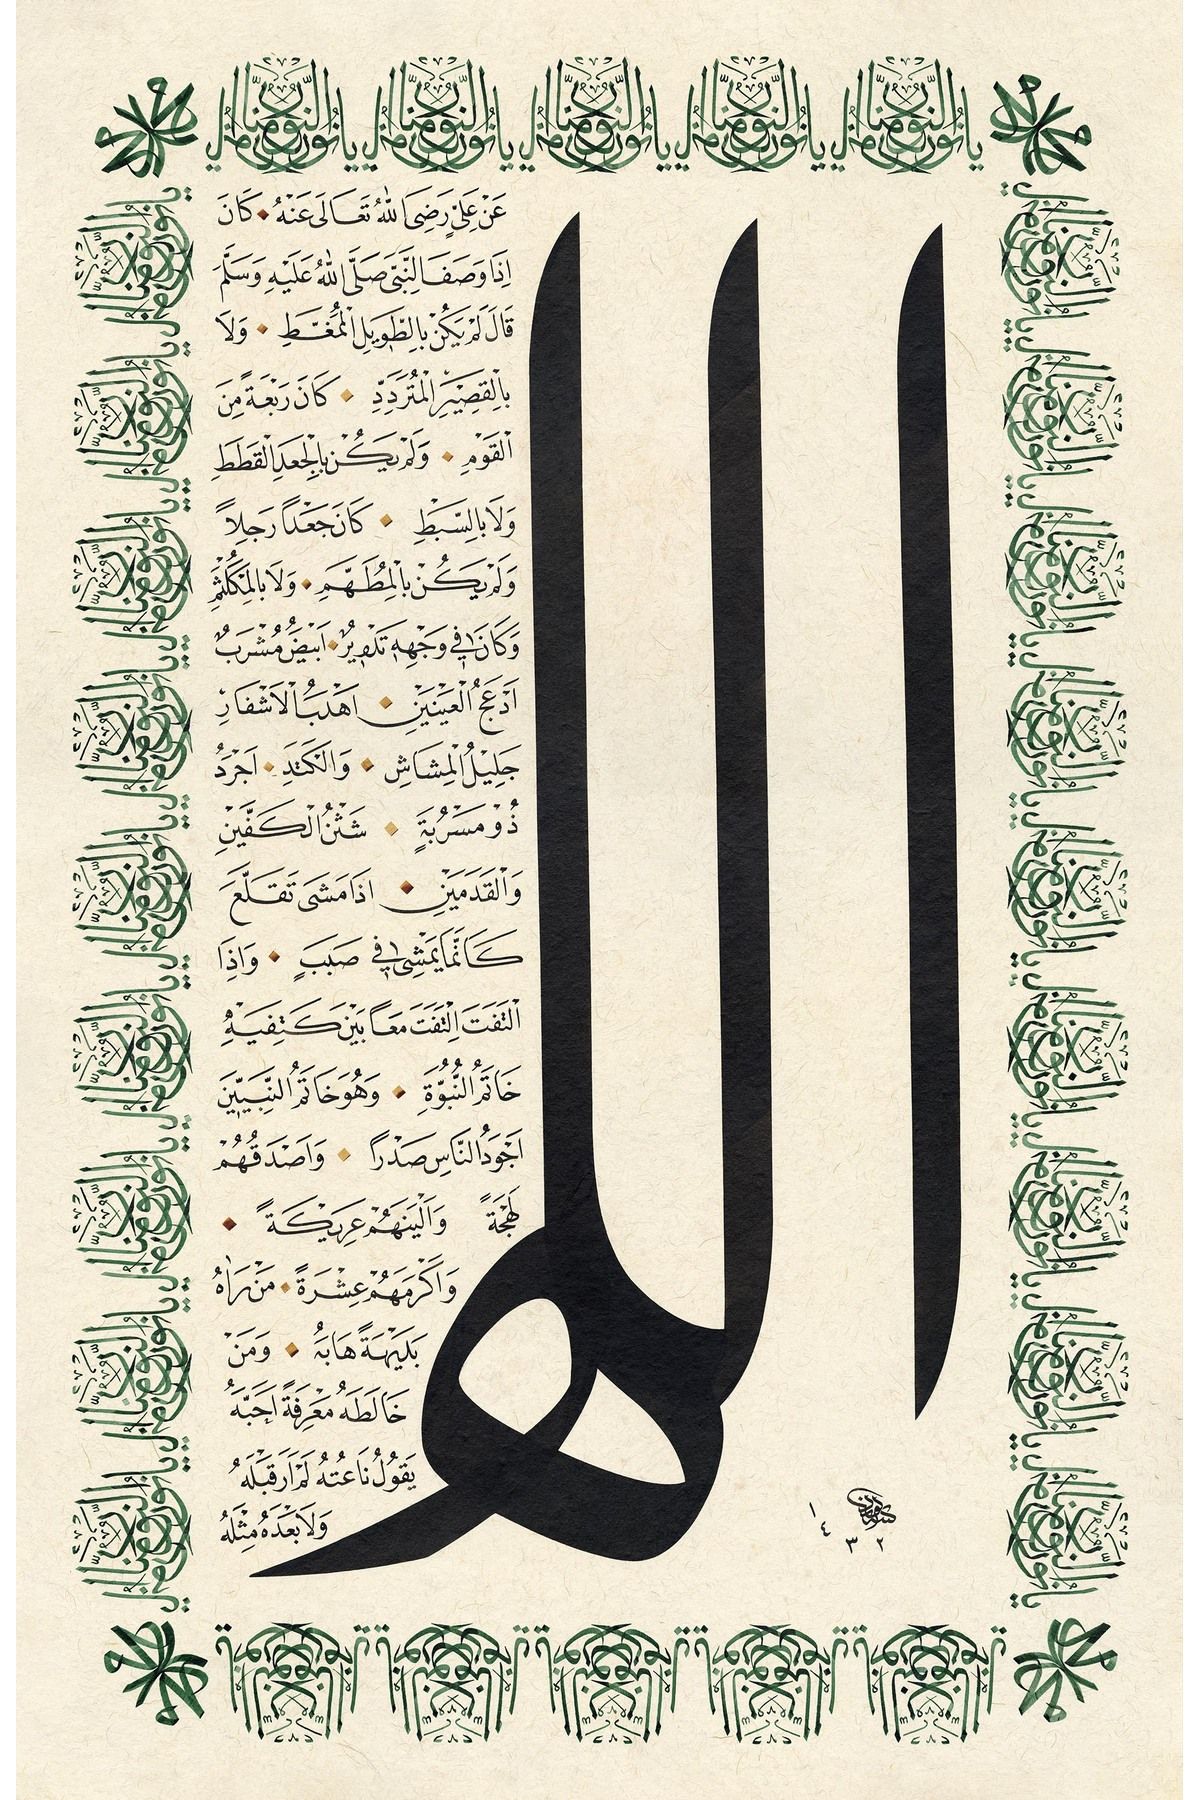 الله
عَنْ عَلِيٍّ رَضِيَ اللهُ تَعَالَى عَنْهُ كَانَ
اِذَا وَصَفَ النَّبِيَّ صَلَّى اللهُ عَلَيْهِ وَسَلَّمَ
قَالَ لَمْ يَكُنْ بِالطَّوِيلِ الْمُمَغَّطِ وَلَا
بِالْقَصِيرِ الْمُتَرَدِّدِ كَانَ رَبْعَةً مِنَ
الْقَوْمِ وَلَمْ يَكُنْ بِالْجَعْدِ الْقَطَطِ
وَلَا بِالسَّبْطِ كَانَ جَعْدًا رَجِلًا
وَلَمْ يَكُنْ بِالْمُطَهَّمِ وَلَا بِالْمُكَلْثَمِ
وَكَانَ فِي وَجْهِهِ تَدْوِيرٌ اَبْيَضُ مُشْرَبٌ
اَدْعَجُ الْعَيْنَيْنِ اَهْدَبُ الْاَشْفَارِ
جَلِيلُ الْمُشَاشِ وَالْكَتَدِ اَجْرَدُ
ذُو مَسْرُبَةٍ شَثْنُ الْكَفَّيْنِ
وَالْقَدَمَيْنِ اِذَا مَشَى تَقَلَّعَ
كَاَنَّمَا يَمْشِي فِي صَبَبٍ وَاِذَا
الْتَفَتَ اِلْتَفَتَ مَعًا بَيْنَ كَتِفَيْهِ
خَاتَمُ النُّبُوَّةِ وَهُوَ خَاتَمُ النَّبِيِّينَ
اَجْوَدُ النَّاسِ صَدْرًا وَاَصْدَقُهُمْ
لَهْجَةً وَاَلْيَنُهُمْ عَرِيكَةً
وَاَكْرَمُهُمْ عِشْرَةً مَنْ رَاٰهُ
بَدِيهَةً هَابَهُ وَمَنْ
خَالَطَهُ مَعْرِفَةً اَحَبَّهُ
يَقُولُ نَاعِتُهُ لَمْ اَرَ قَبْلَهُ
وَلَا بَعْدَهُ مِثْلَهُ
١٤٣٢